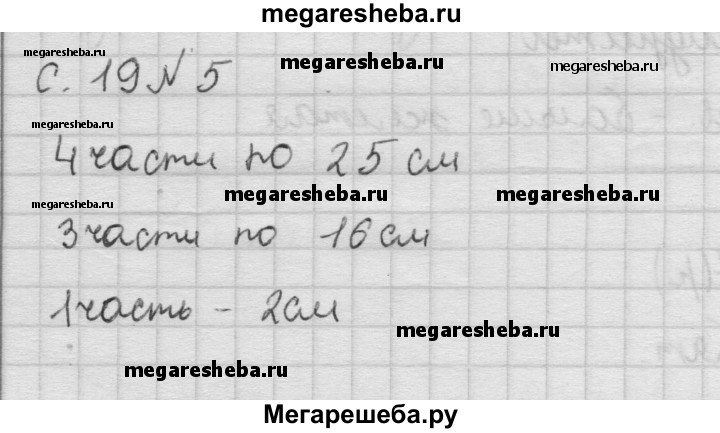 megaresheba.ru
megaresheba.ru
с. 19 N 5
megaresheba.ru
megaresheba.ru
megaresheba.ru
4 части по 25 см
megaresheba.ru
megaresheba.ru
megaresheba.ru
3 части по 16 см
1 часть - 2 см
megaresheba.ru
megaresheba.ru
Мегарешеба.ру